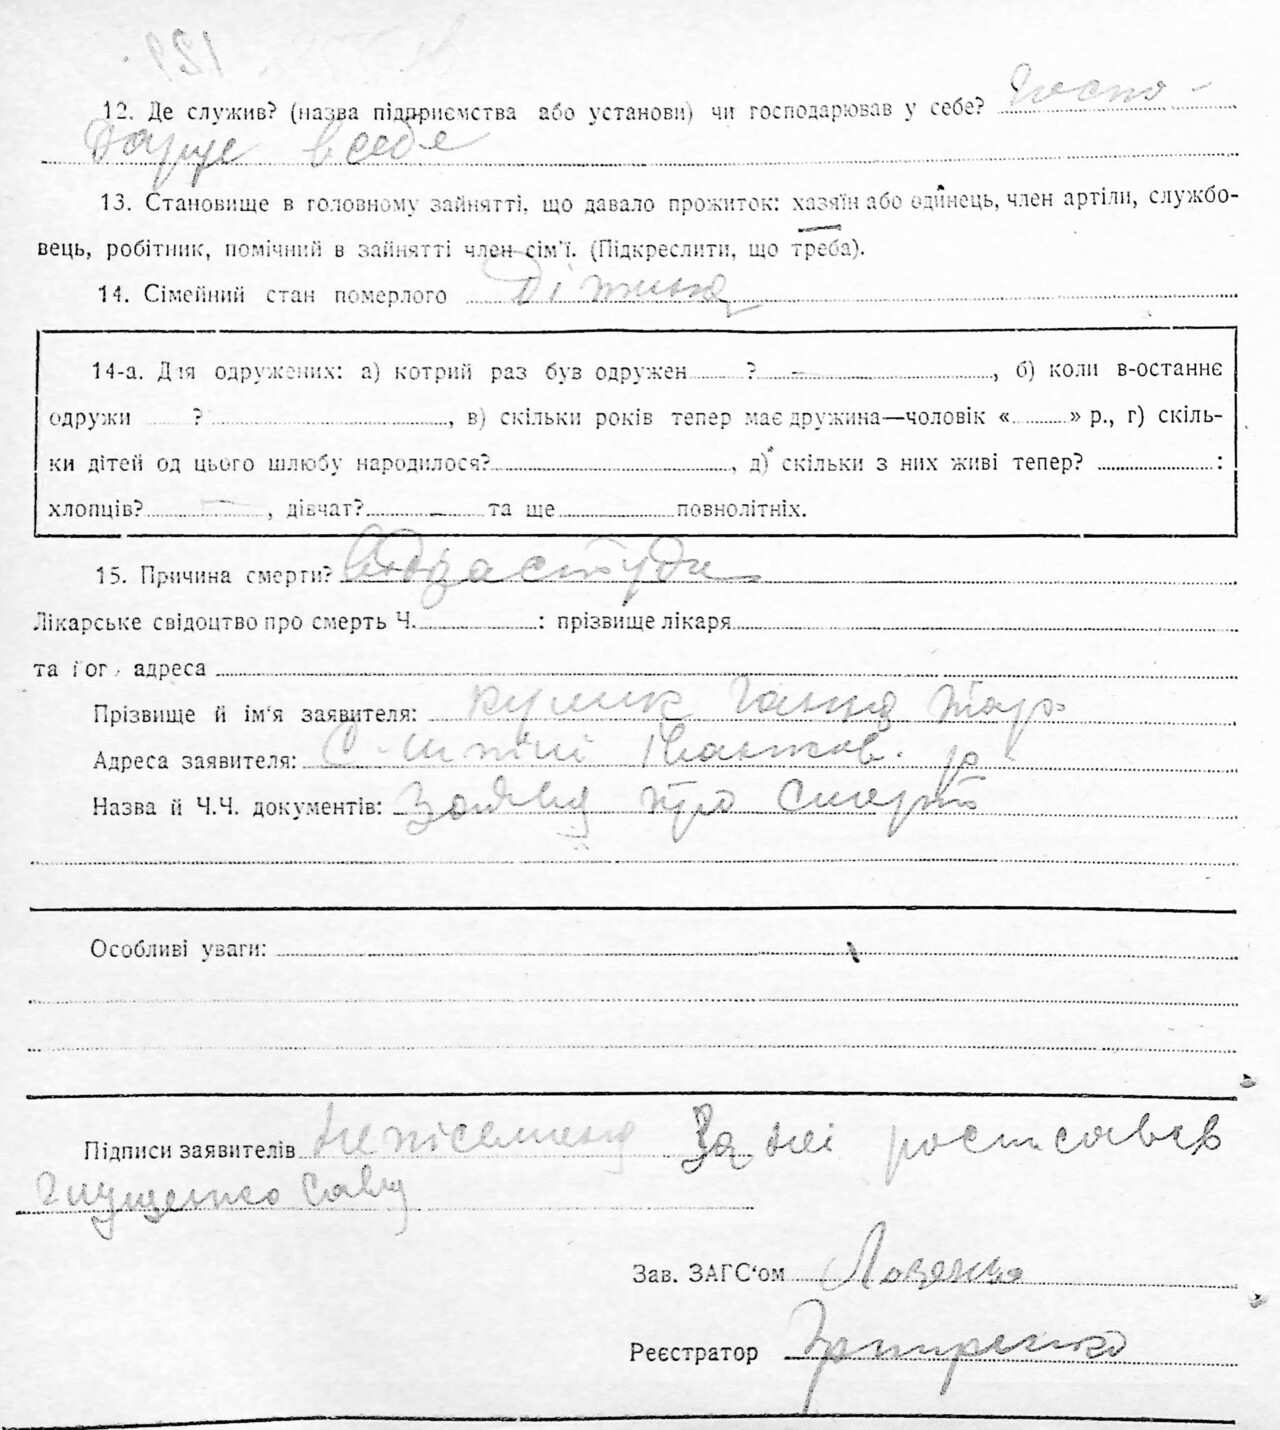 12. Де служив? (назва підприємства або установи) чи господарював у себе? Госпо-
дарує в себе
13. Становище в головному зайнятті, що давало прожиток: хазяїн або одинець, член артіли, службо-
вець, робітник, помічний в зайнятті член сім'ї. (Підкреслити, що треба).
14. Сімейний стан померлого Дітина
14-а. Для одружених: а) котрий раз був одружен ? —, б) коли в-останнє
одружи ? , в) скільки років тепер має дружина—чоловік « » р., г) скіль-
ки дітей од цього шлюбу народилося? , д) скільки з них живі тепер? :
хлопців? — , дівчат? — та ще повнолітніх.
15. Причина смерти? Від застуди
Лікарське свідоцтво про смерть Ч. : прізвище лікаря
та його адреса
Прізвище й ім'я заявителя: Кулик Ганна
Адреса заявителя: С.
Назва й Ч.Ч. документів: Заява про смерть
Особливі уваги:
Підписи заявителів Неписемна За неї росписався
Сава
Зав. ЗАГС'ом
Реєстратор